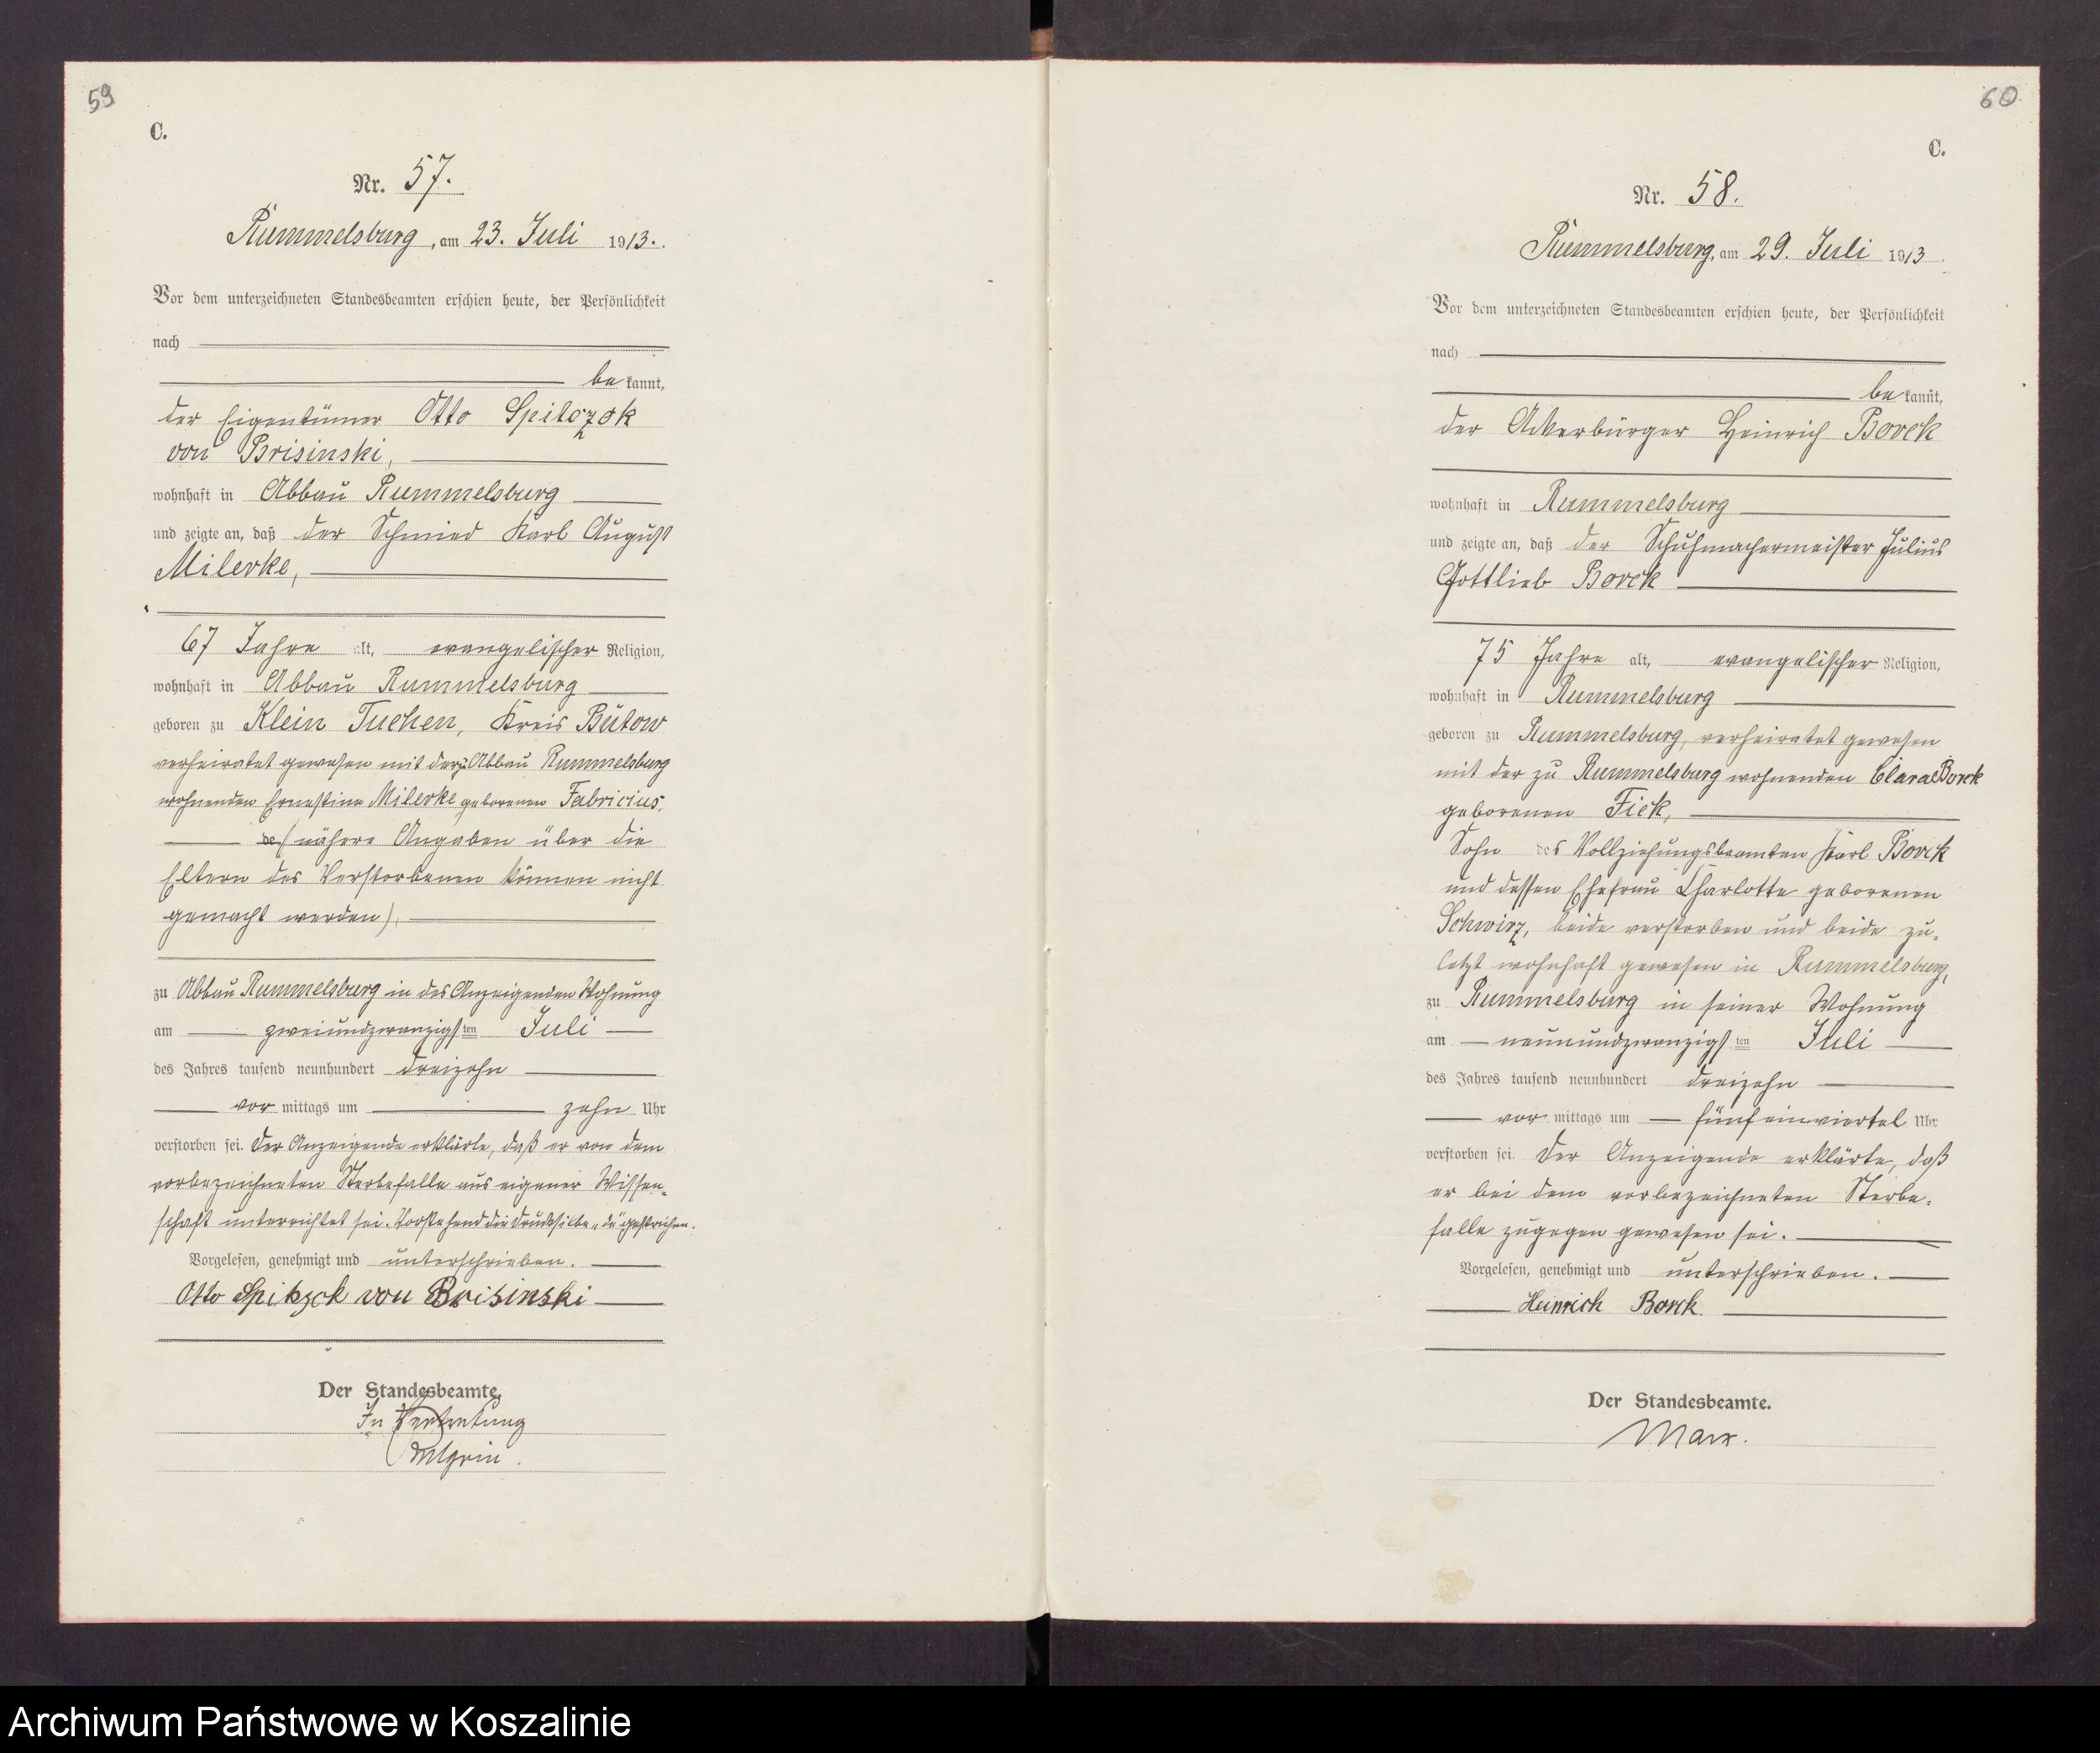 59
C.
Nr. 57.
Rummelsburg, am 23. Juli 1913.
Vor dem unterzeichneten Standesbeamten erschien heute, der Persönlichkeit
nach
bekannt,
der Eigentümer Otto Spitczok
von Brisinski,
wohnhaft in Abbau Rummelsburg
und zeigte an, daß der Schmied Karl August
Milerke,
67 Jahre alt, evangelischer Religion,
wohnhaft in Abbau Rummelsburg
geboren zu Klein Tuchen, Kreis Bütow
verheiratet gewesen mit der zu Abbau Rummelsburg
wohnenden Ernestine Milerke geborenen Fabricius,
de (nähere Angaben über die
Eltern des Verstorbenen können nicht
gemacht werden),
zu Abbau Rummelsburg in des Anzeigenden Wohnung
am zweiundzwanzigsten Juli
des Jahres tausend neunhundert dreizehn
vormittags um zehn Uhr
verstorben sei. Der Anzeigende erklärte, daß er von dem
vorbezeichneten Sterbefalle aus eigener Wissen-
schaft unterrichtet sei. Vorstehend die Drucksilbe „de“ gestrichen.
Vorgelesen, genehmigt und unterschrieben.
Otto Spitzck von Brisinski
Der Standesbeamte.
In Vertretung
60
C.
Nr. 58.
Rummelsburg, am 29. Juli 1913
Vor dem unterzeichneten Standesbeamten erschien heute, der Persönlichkeit
nach
bekannt,
der Ackerbürger Heinrich Borck
wohnhaft in Rummelsburg
und zeigte an, daß der Schuhmachermeister Julius
Gottlieb Borck
75 Jahre alt, evangelischer Religion,
wohnhaft in Rummelsburg
geboren zu Rummelsburg, verheiratet gewesen
mit der zu Rummelsburg wohnenden Clara Borck
geborenen Fick,
Sohn des Vollziehungsbeamten Karl Borck
und dessen Ehefrau Charlotte geborenen
Schwirz, beide verstorben und beide zu-
letzt wohnhaft gewesen in Rummelsburg,
zu Rummelsburg in seiner Wohnung
am neunundzwanzigsten Juli
des Jahres tausend neunhundert dreizehn
vormittags um fünfeinviertel Uhr
verstorben sei. Der Anzeigende erklärte, daß
er bei dem vorbezeichneten Sterbe-
falle zugegen gewesen sei.
Vorgelesen, genehmigt und unterschrieben.
Heinrich Borck
Der Standesbeamte.
Marx.
Archiwum Państwowe w Koszalinie